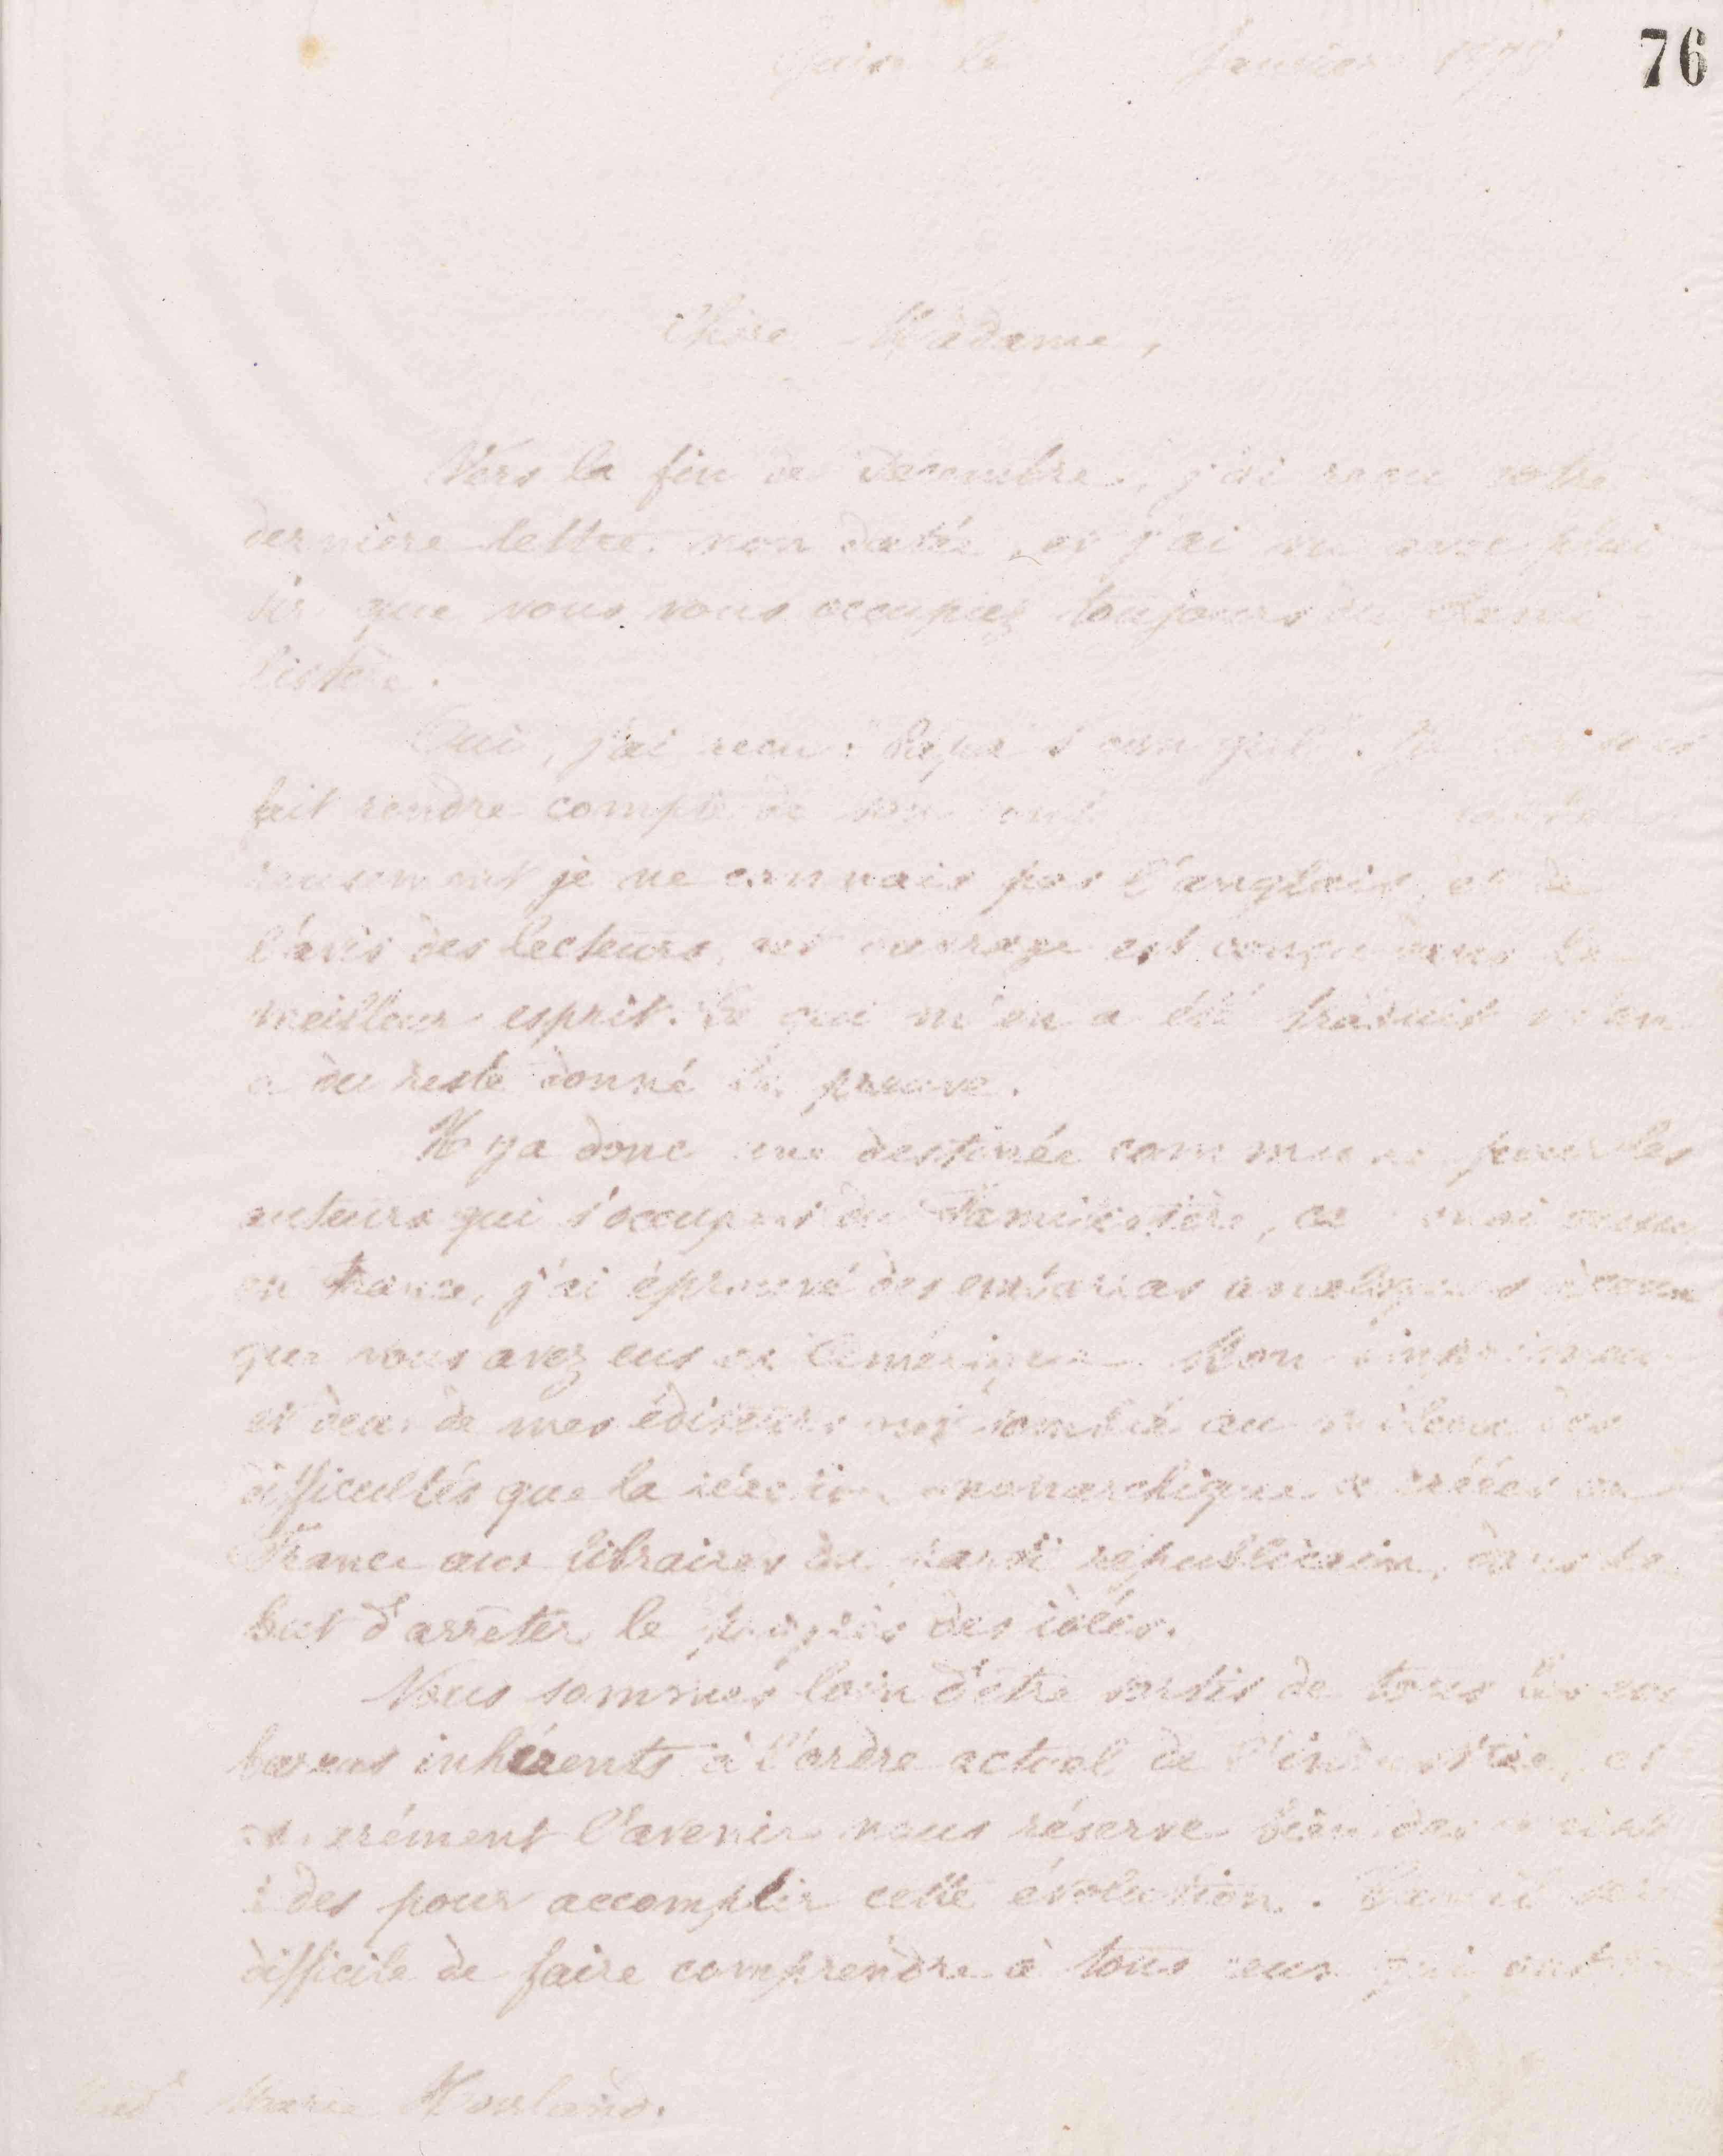 76
Guise le Janvier
Chère Madame,
Vers la fin de décembre, j'ai reçu votre
dernière lettre non datée, et j'ai vu avec plai
sir que vous vous occupez toujours du Fami
listère.
Oui, j'ai reçu "Papa's own girl".
fait rendre compte de
reusement je ne connais pas l'anglais, et de
l'avis des lecteurs, cet ouvrage est conçu dans le
meilleur esprit. Ce qui m'en a été traduit m'en
a du reste donné la preuve.
Il y a donc une destinée commune pour les
auteurs qui s'occupent du Familistère, car moi aussi
en France, j'ai éprouvé des embarras analogues à ceux
que vous avez eus en Amérique. Mon imprimeur
et deux de mes éditeurs ont sombré au milieu des
difficultés que la réaction monarchique a créées en
France aux libraires du parti républicain, dans le
but d'arrêter le progrès des idées.
Nous sommes loin d'être sortis de tous les em
barras inhérents à l'ordre actuel de l'industrie, et
l'avenir nous réserve bien des
des pour accomplir cette évolution.
difficile de faire comprendre à tous ceux qui ont
Mad Marie Howland.